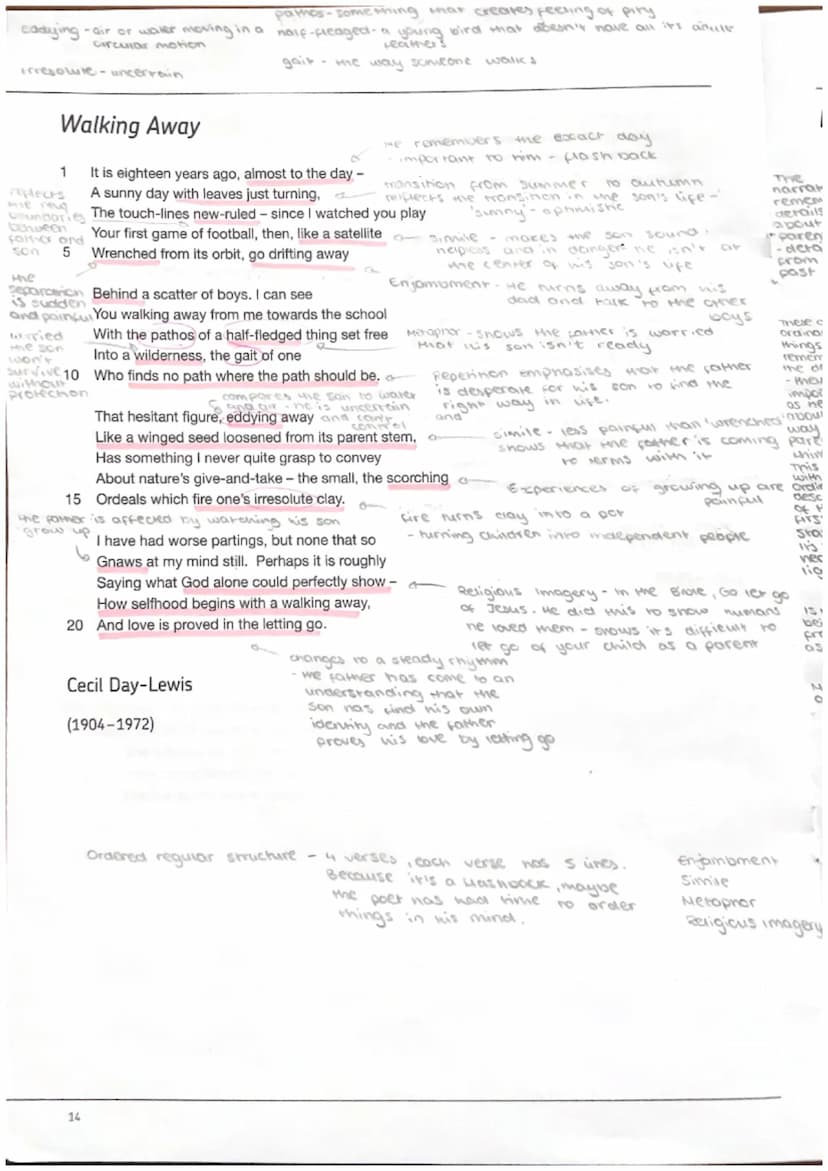 pathos - something that creates feeling of pity
eddying - air or water moving in a circular motion
half-fledged - a young bird that doesn't have all its adult feathers
irresolute - uncertain
gait - the way someone walks
Walking Away
He remembers the exact day
- important to him - flash back
1 It is eighteen years ago, almost to the day –
A sunny day with leaves just turning,
The touch-lines new-ruled – since I watched you play
Your first game of football, then, like a satellite
5 Wrenched from its orbit, go drifting away
transition from summer to autumn
reflects the transition in the son's life -
'sunny' - optimistic
reflects
the new
boundaries
between
father and
son
simile - makes the son sound
helpless and in danger. he isn't at
the center of his son's life
Behind a scatter of boys. I can see
You walking away from me towards the school
With the pathos of a half-fledged thing set free
Into a wilderness, the gait of one
10 Who finds no path where the path should be.
the
separation
is sudden
and painful
Enjambment - He turns away from his
dad and talk to the other
boys
worried
the son
won't
survive
without
protection
Metaphor - shows the father is worried
that his son isn't ready
Repetition emphasises that the father
is desperate for his son to find the
right way in life.
compares the son to water
and air - he is uncertain
and can't
control
That hesitant figure, eddying away
Like a winged seed loosened from its parent stem,
Has something I never quite grasp to convey
About nature's give-and-take – the small, the scorching
15 Ordeals which fire one's irresolute clay.
and
simile - less painful than 'wrenched'
shows that the father is coming
to terms with it
Experiences of growing up are
painful
fire turns clay into a pot
- turning children into independent people
the father is affected by watching his son
grow up
I have had worse partings, but none that so
Gnaws at my mind still. Perhaps it is roughly
Saying what God alone could perfectly show –
How selfhood begins with a walking away,
20 And love is proved in the letting go.
Religious imagery - in the Bible, Go let go
of Jesus. He did this to show humans
he loved them - shows its difficult to
let go of your child as a parent
changes to a steady rhythm
- the father has come to an
understanding that the
son has find his own
identity and the father
proves his love by letting go
Cecil Day-Lewis
(1904–1972)
Ordered regular structure - 4 verses, each verse has 5 lines.
Because it's a flashback, maybe
the poet has had time to order
things in his mind.
Enjambment
Simile
Metaphor
Religious imagery
The
narrat
remem
details
about
paren
- deta
from
past
These
ordina
things
remem
the
impor
as
way
pare
thin
This
with
ordin
desc
of
firs
its
nec
is
bei
as
14